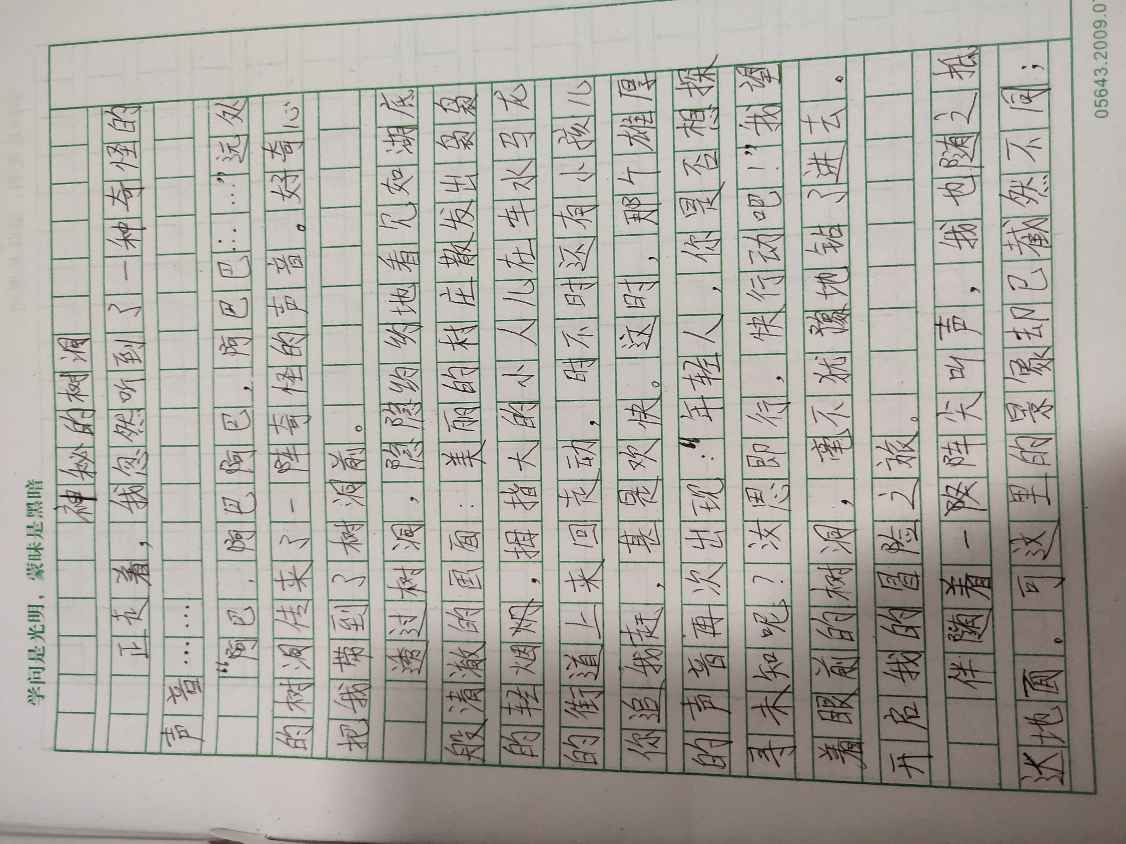 学问是光明，蒙昧是黑暗
神秘的树洞
正走着，我忽然听到了一种奇怪的
声音……
“啊巴.啊巴啊巴，啊巴巴……”远处
的树洞传来了一阵奇怪的声音。好奇心
把我带到了树洞前。
透过树洞，隐隐约约地看见如湖底
般清澈的画面：美丽的村庄散发出袅袅
的轻烟，拇指大的小人儿在车水马龙
的街道上来回走动，时不时还有小孩儿
你追我赶，甚是欢快。这时，那个雄厚
的声音再次出现：“年轻人，你是否想探
寻未知呢？汝思即行，快行动吧！”我望
着眼前的树洞，毫不犹豫地钻了进去。
开启我的冒险之旅。
伴随着一阵阵尖叫声，我也随之抵
达地面。可这里的景象却已截然不同；
05643.2009.07